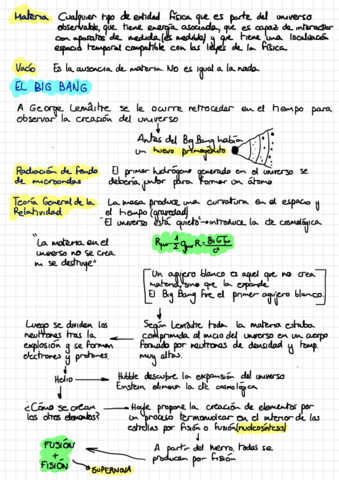 Materia Cualquier tipo de entidad física que es parte del universo
observable, que tiene energía asociada, que es capaz de interactuar
con aparatos de medida (es medible) y que tiene una localización
espacio temporal compatible con las leyes de la física.
Vacío Es la ausencia de materia. No es igual a la nada.
EL BIG BANG
A George Lemâitre se le ocurre retroceder en el tiempo para
observar la creación del universo
Antes del Big Bang había
un huevo primogénito
Radiación de fondo El primer hidrógeno generado en el universo se
de microondas debería juntar para formar un átomo
Teoría General de la La masa produce una curvatura en el espacio y
Relatividad el tiempo (gravedad)
"El universo está quieto" → introduce la cte cosmológica
"La materia en el
universo no se crea
ni se destruye"
Rμν - 1/2 gμν R = 8πGTμν/c⁴
Un agujero blanco es aquel que no crea
materia sino que la expande
El Big Bang fue el primer agujero blanco
Luego se dividen los
neutrones tras la
explosión y se forman
electrones y protones.
Según Lemâitre toda la materia estaba
comprimida al inicio del universo en un cuerpo
formado por neutrones de densidad y temp.
muy altas.
Helio
Hubble descubre la expansión del universo
Einstein elimina la cte cosmológica
¿Cómo se crean
los otros elementos?
Hoyle propone la creación de elementos por
un proceso termonuclear en el interior de las
estrellas por fisión o fusión (nucleosíntesis)
FUSIÓN
+
FISIÓN
SUPERNOVA
A partir del hierro, todos se
producen por fisión